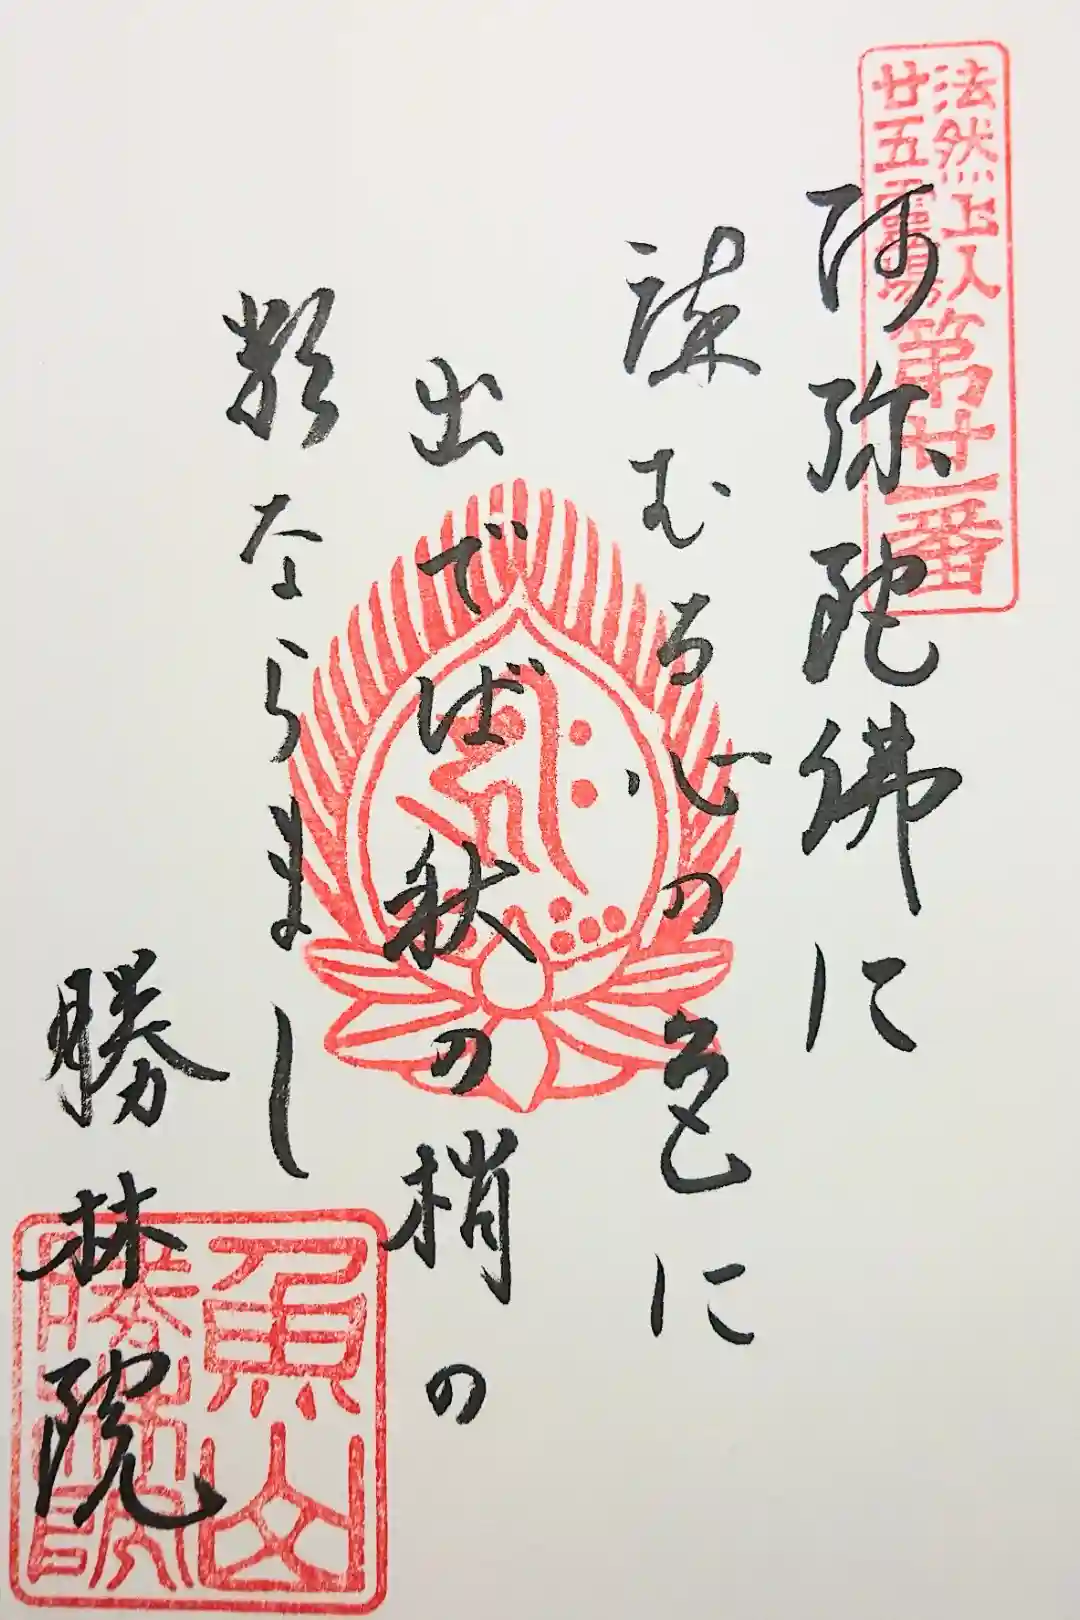 法然上人
廿五霊場
第廿一番
阿弥陀佛に
染むる心の色に
出でば秋の梢の
類ならまし
勝林院
魚山
勝林院